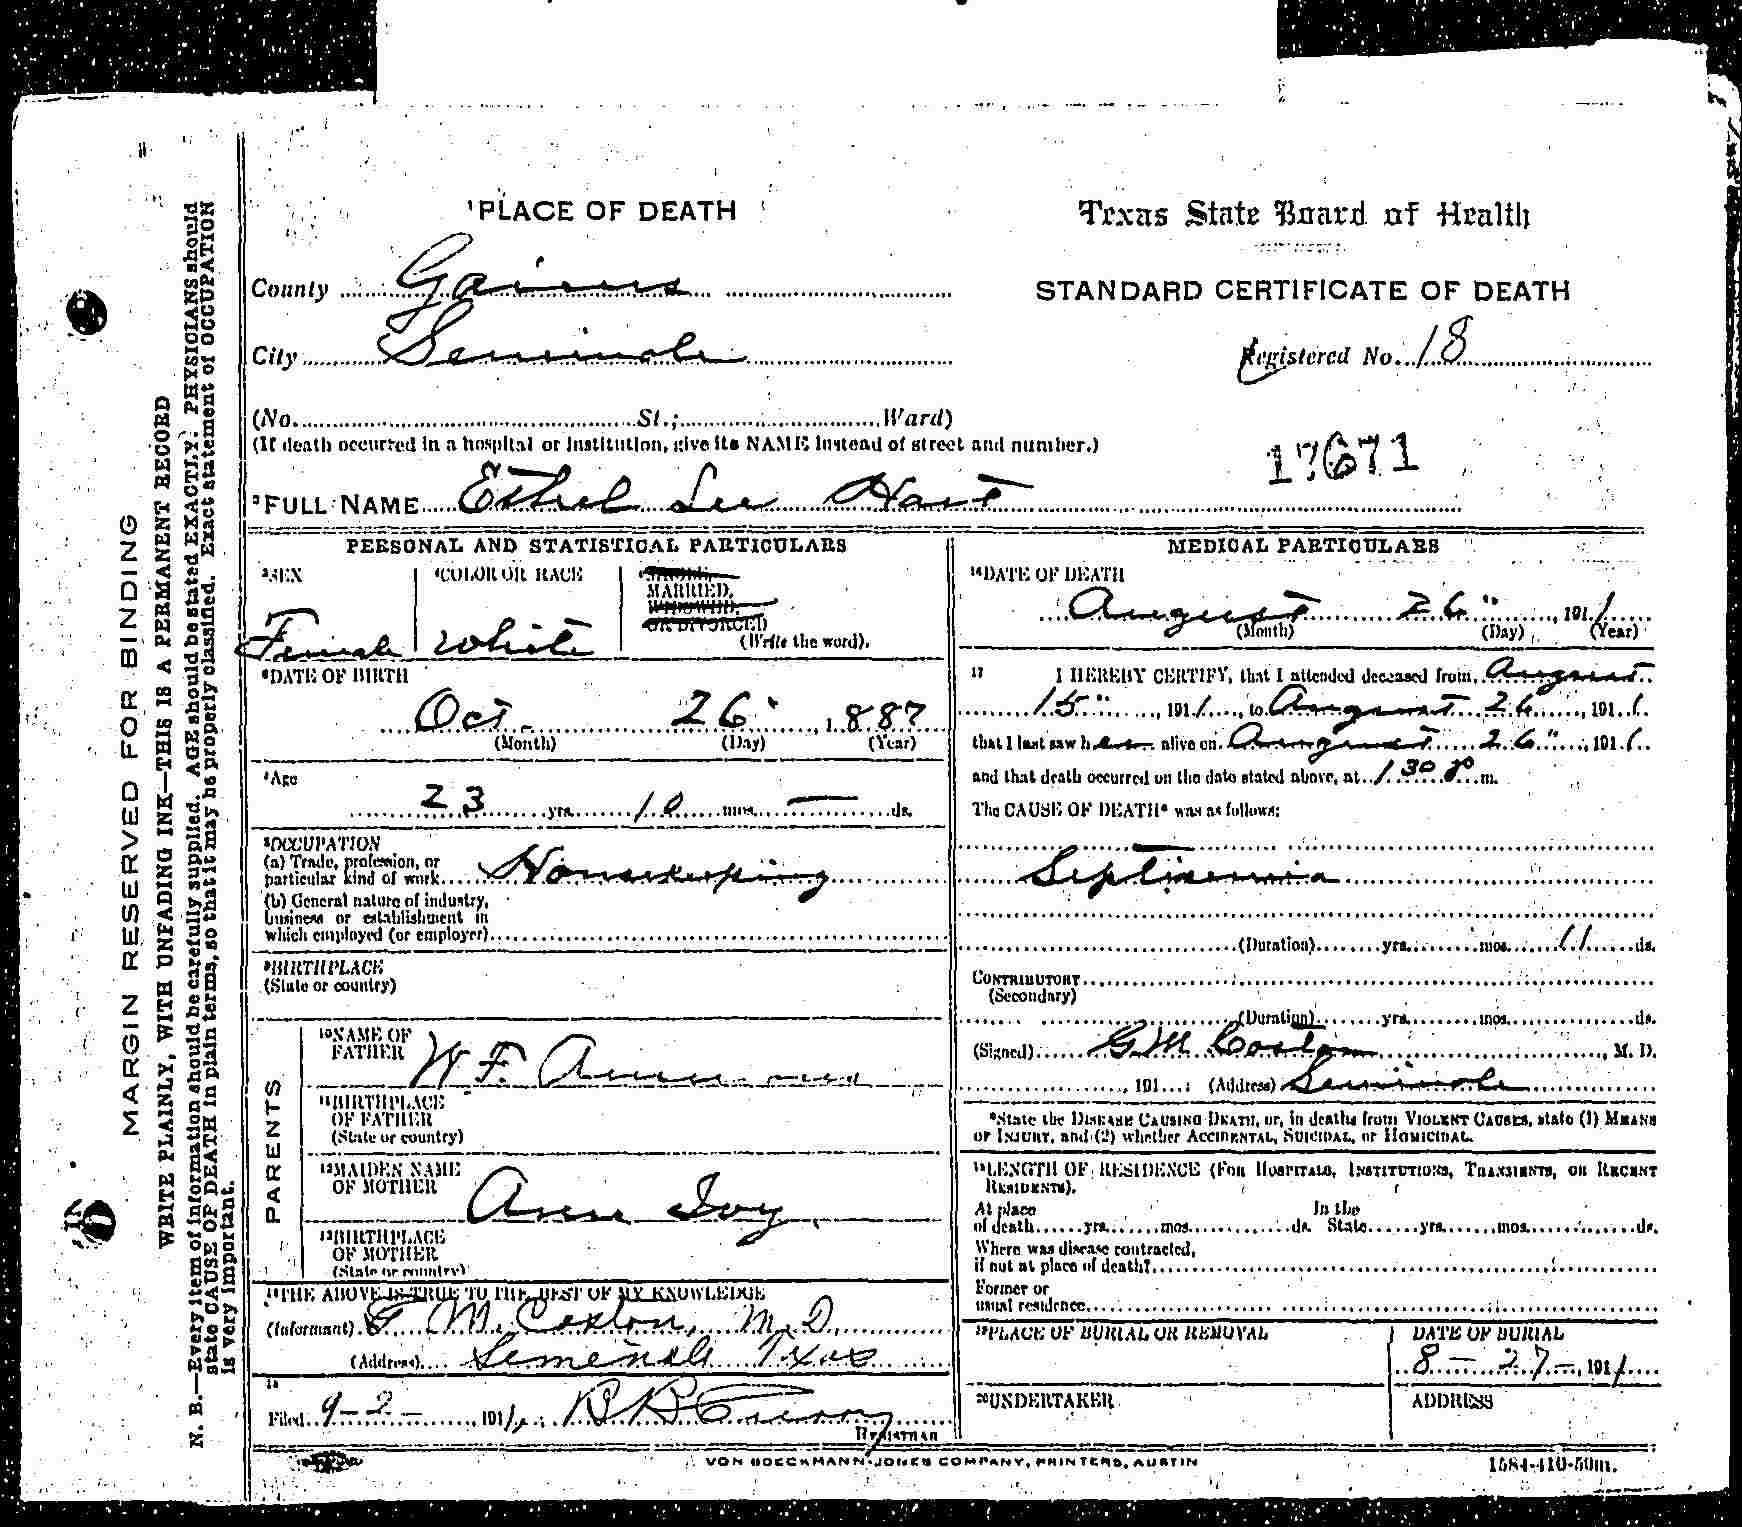 ¹PLACE OF DEATH
Texas State Board of Health
County Gaines
STANDARD CERTIFICATE OF DEATH
City Seminole
Registered No. 18
(No. St.; Ward)
(If death occurred in a hospital or institution, give its NAME instead of street and number.)
17671
²FULL NAME Ethel Lee Hart
PERSONAL AND STATISTICAL PARTICULARS
³SEX
Female
⁴COLOR OR RACE
White
SINGLE,
MARRIED,
WIDOWED,
OR DIVORCED
(Write the word).
⁶DATE OF BIRTH
Oct. 26" 1887
(Month) (Day) (Year)
⁷Age
23 yrs. 10 mos. — ds.
⁸OCCUPATION
(a) Trade, profession, or
particular kind of work Housekeeping
(b) General nature of industry,
business or establishment in
which employed (or employer)
⁹BIRTHPLACE
(State or country)
PARENTS
¹⁰NAME OF
FATHER W. F.
¹¹BIRTHPLACE
OF FATHER
(State or country)
¹²MAIDEN NAME
OF MOTHER Ann Ivy
¹³BIRTHPLACE
OF MOTHER
(State or country)
¹⁴THE ABOVE IS TRUE TO THE BEST OF MY KNOWLEDGE
(Informant) M. M.D.
(Address) Seminole Texas
¹⁵
Filed 9-2- 1911
REGISTRAR
MEDICAL PARTICULARS
¹⁶DATE OF DEATH
August 26" 1911
(Month) (Day) (Year)
17 I HEREBY CERTIFY, that I attended deceased from August
15" 1911, to August 26, 1911
that I last saw her alive on August 26" 1911
and that death occurred on the date stated above, at 1 30 p m.
The CAUSE OF DEATH* was as follows:
Septisemia
(Duration) yrs. mos. 11 ds.
CONTRIBUTORY
(Secondary)
(Duration) yrs. mos. ds.
(Signed) G M M. D.
191 (Address) Seminole
*State the DISEASE CAUSING DEATH, or, in deaths from VIOLENT CAUSES, state (1) MEANS
OF INJURY, and (2) whether ACCIDENTAL, SUICIDAL, or HOMICIDAL.
¹⁸LENGTH OF RESIDENCE (FOR HOSPITALS, INSTITUTIONS, TRANSIENTS, OR RECENT
RESIDENTS).
At place In the
of death yrs. mos. ds. State yrs. mos. ds.
Where was disease contracted,
if not at place of death?
Former or
usual residence
¹⁹PLACE OF BURIAL OR REMOVAL
DATE OF BURIAL
8-27-, 1911
²⁰UNDERTAKER
ADDRESS
VON BOECKMANN-JONES COMPANY, PRINTERS, AUSTIN
1584-410-50m.
MARGIN RESERVED FOR BINDING
WRITE PLAINLY, WITH UNFADING INK—THIS IS A PERMANENT RECORD
N. B.—Every item of information should be carefully supplied. AGE should be stated EXACTLY. PHYSICIANS should
state CAUSE OF DEATH in plain terms, so that it may be properly classified. Exact statement of OCCUPATION
is very important.